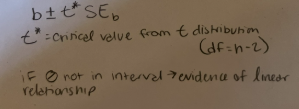 b ± t* SE_b
t* = critical value from t distribution
(df=n-2)
if 0 not in interval → evidence of linear
relationship